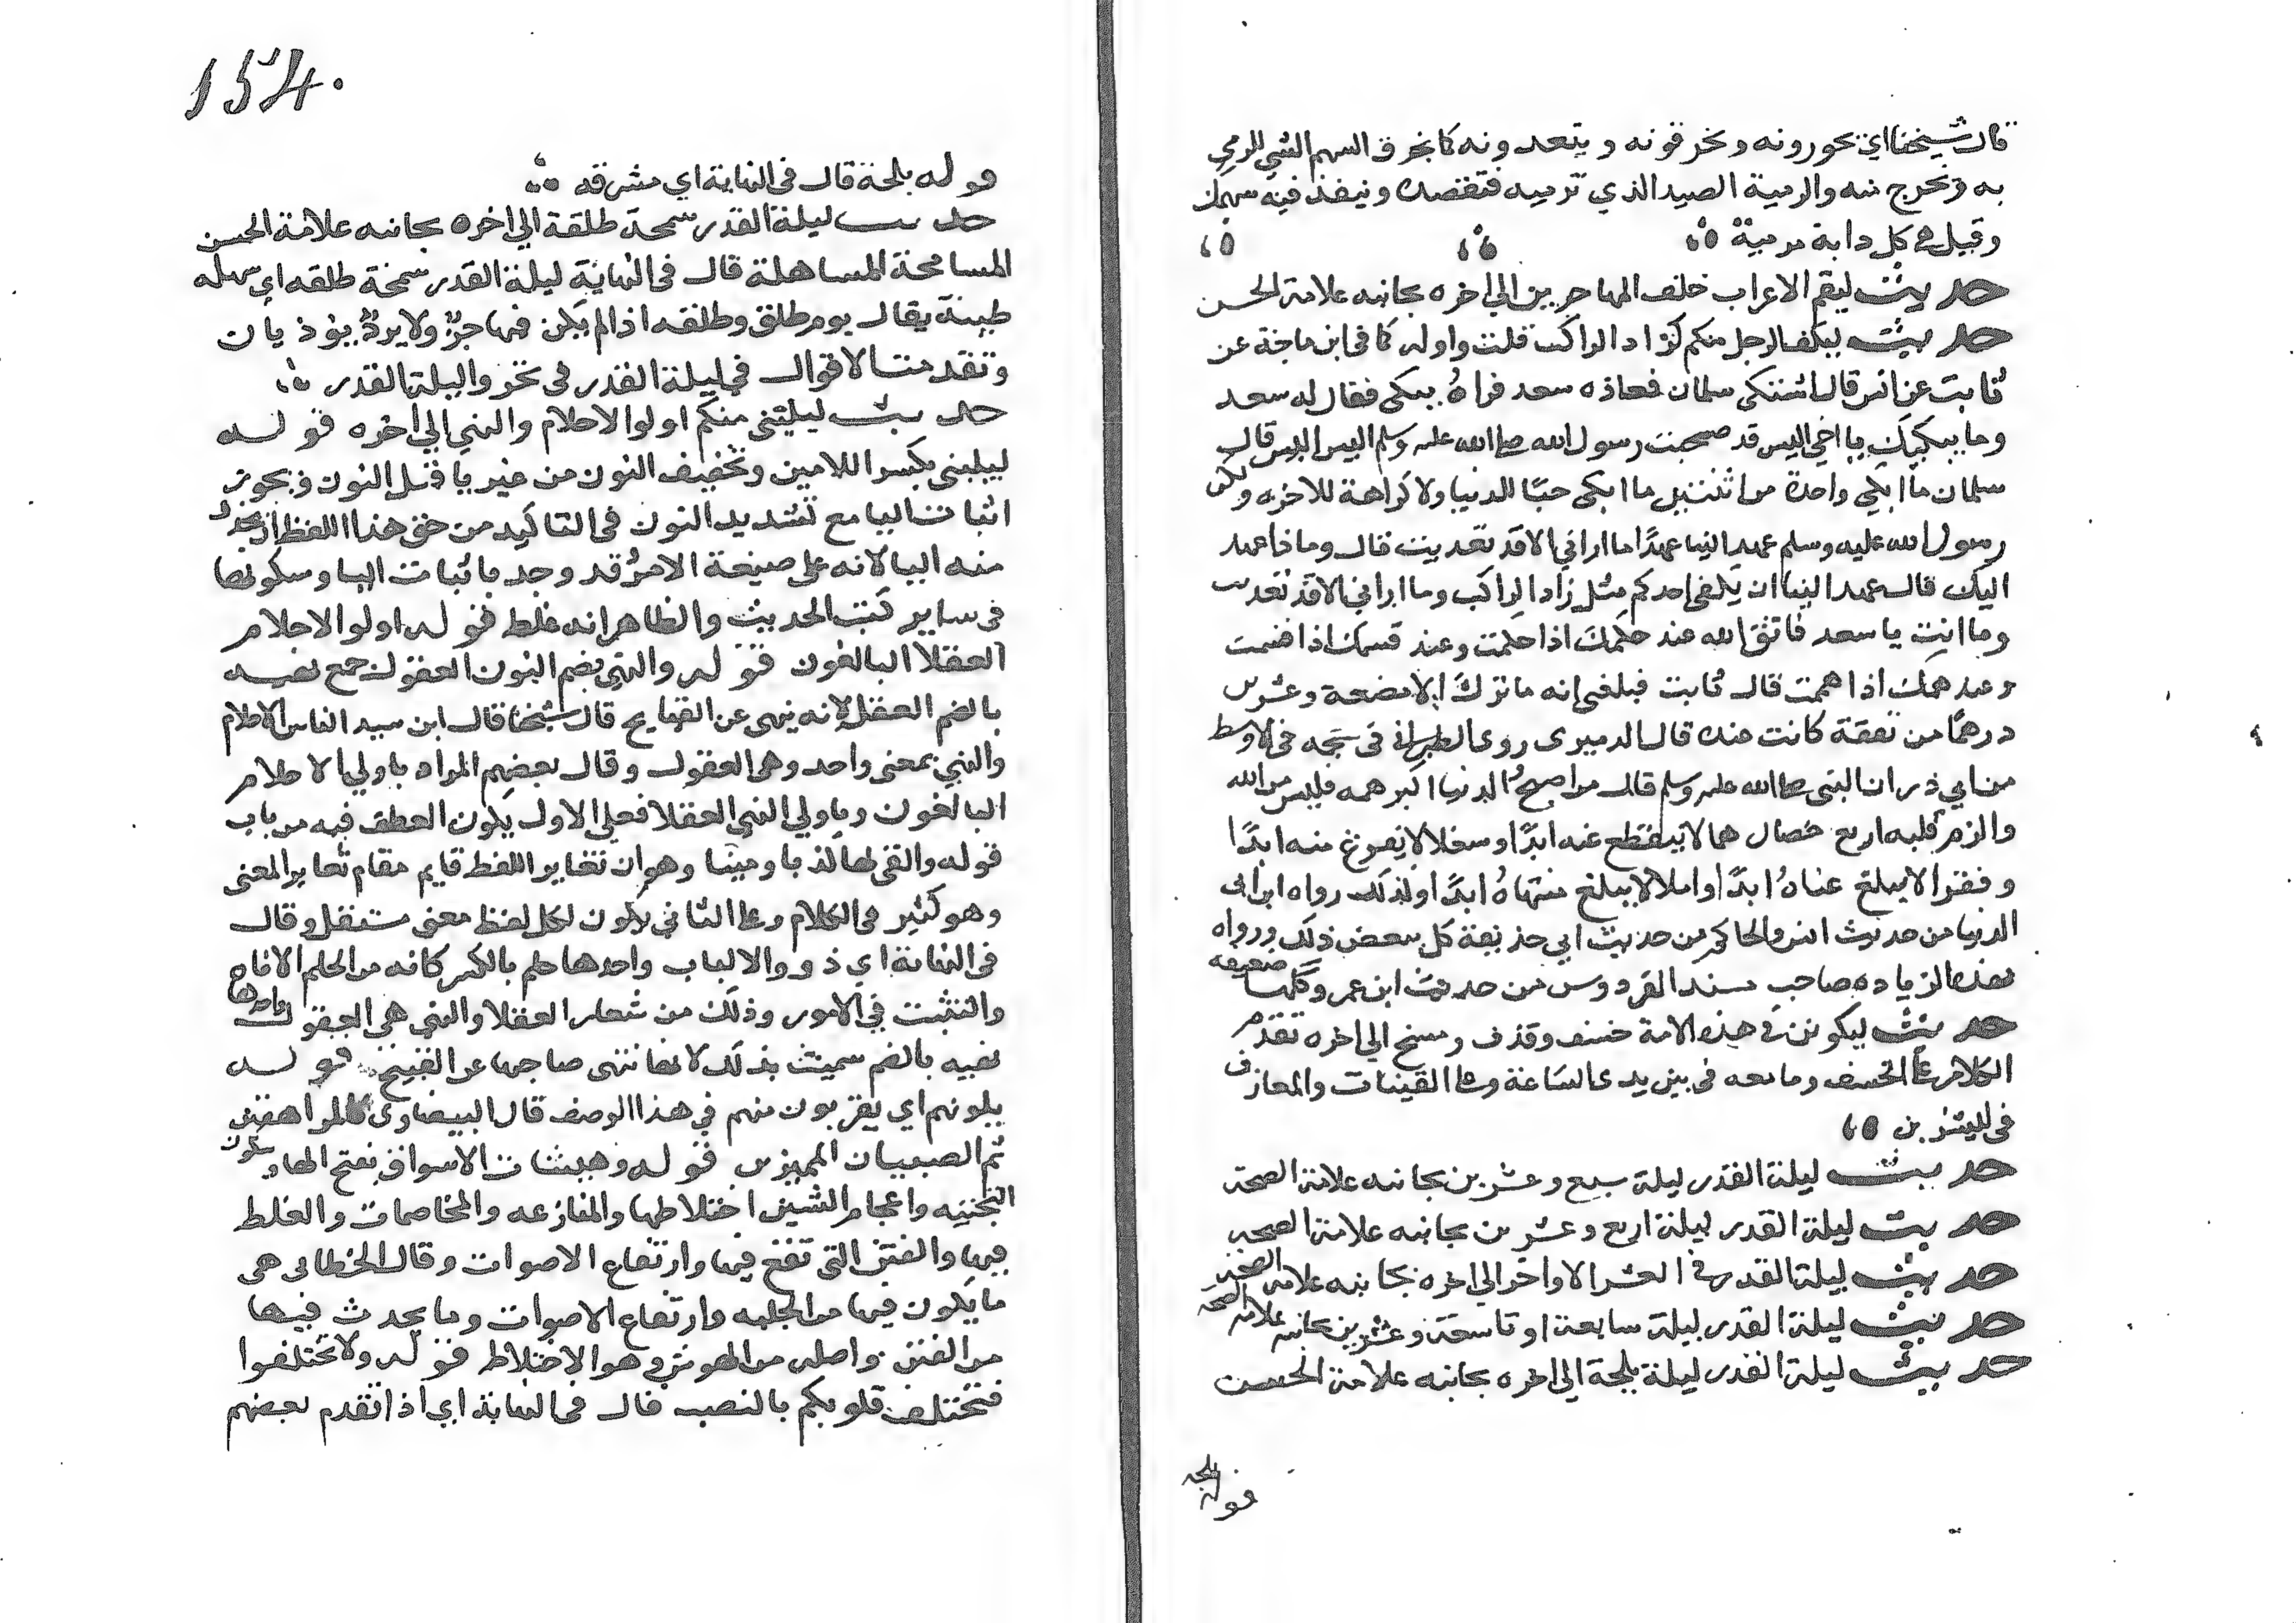 قال شيخنا اي يحوزونه ويخرقونه ويتعدونه كما يخرق السهم الشي المرمي
به ويخرج منه والرمية الصيد الذي ترميه فتقصده وينفذ فيه سهمك
وقيل هي كل دابة مرمية
حديث ليقم الاعراب خلف المهاجرين الي اخره بجانبه علامة الحسن
حديث ليكف الرجل منكم كزاد الراكب قلت واوله كما في ابن ماجة عن
ثابت عن انس قال اشتكي سلمان فعاده سعد فراهُ يبكي فقال له سعد
وما يبكيك يا اخي اليس قد صحبت رسول الله صلى الله عليه وسلم اليس اليس قال
سلمان ما ابكي واحدة من اثنتين ما ابكي حبًا للدنيا ولا كراهة للاخره ولكن
رسول الله عليه وسلم عهد الينا عهدًا ما اراني الا قد تعديت قال وماذا عهد
اليك قال عهد الينا ان يكفي احدكم مثل زاد الراكب وما اراني الا قد تعديت
وما انت يا سعد فاتق الله عند حكمك اذا حكمت وعند قسمك اذا قسمت
وعند همك اذا هممت قال ثابت فبلغني انه ما ترك الا بضعة وعشرين
درهمًا من نفقة كانت عنده قال الدميري روي الطبراني في معجمه الاوسط
من ابي ذر ان النبي صلى الله عليه وسلم قال من اصبح الدنيا اكبر همه فليس من الله
والزم قلبه اربع خصال هما لا ينقطع عنه ابدًا وشغلا لا يفرغ منه ابدًا
وفقرا لا يبلغ غناهُ ابدًا واملا لا يبلغ منتهاهُ ابدًا وكذلك رواه ابن ابي
الدنيا من حديث انس والحاكم من حديث ابي حذيفة كل بعض ذلك ورواه
بهذه الزياده صاحب مسند الفردوس من حديث ابن عمر وكلها ضعيفه
حديث ليكونن في هذه الامة خسف وقذف ومسخ الي اخره تقدم
الكلام على الخسف وما معه في بين يدي الساعة وعلى القينات والمعازف
في ليشربن
حديث ليلة القدر ليلة سبع وعشرين بجانبه علامة الصحة
حديث ليلة القدر ليلة اربع وعشرين بجانبه علامة الصحه
حديث ليلة القدر في العشر الاواخر الي اخره بجانبه علامة الصحه
حديث ليلة القدر ليلة سابعة او تاسعة وعشرين بجانبه علامة الصحه
حديث ليلة القدر ليلة بلجة الي اخره بجانبه علامة الحسن
قوله بلجه
154.
قوله بلجة قال في النهاية اي مشرقه
حديث ليلة القدر سمحة طلقة الي اخره بجانبه علامة الحسن
المسامحة المساهلة قال في النهاية ليلة القدر سمحة طلقه اي سهله
طيبة يقال يوم طلق وطلقه اذا لم يكن فيها حرٌّ ولا بردٌ يوذيان
وتقدمت الاقوال في ليلة القدر في تحروا ليلة القدر
حديث ليليني منكم اولوا الاحلام والنهي الي اخره قوله
ليليني بكسر اللامين وتخفيف النون من غير يا قبل النون ويجوز
اثبات اليا مع تشديد النون في التاكيد من حق هذا اللفظ ان يحذف
منه اليا لانه على صيغة الامر وقد وجد باثبات اليا وسكونها
في ساير كتب الحديث والظاهر انه غلط قوله اولوا الاحلام
العقلا البالغون قوله والنهي بضم النون العقول جمع نهيه
بالضم العقل لانه ينهي عن القبايح قال شيخنا قال ابن سيد الناس الاحلام
والنهي بمعني واحد وهي العقول وقال بعضهم المراد باولي الاحلام
البالغون وباولي النهي العقلا فعلي الاول يكون العطف فيه من باب
قوله والقي لها كذبا ومينا وهو ان تغاير اللفظ قايم مقام تغاير المعني
وهو كثير في الكلام وعلى الثاني يكون لكل لفظ معني مستقل وقال
في النهاية اي ذوو الالباب واحدها حلم بالكسر كانه من الحلم الاناه
والتثبت في الامور وذلك من شعار العقلا والنهي هي العقول واحدها
نهيه بالضم سميت بذلك لانها تنهي صاحبها عن القبيح قوله
يلونهم اي يقربون منهم في هذا الوصف قال البيضاوي كالمراهقين
ثم الصبيان المميزين قوله وهيشات الاسواق بفتح الهاء وسكون
التحتيه واعجام الشين اختلاطها والمنازعه والمخاصمات والغلط
فيها والفتن التي تقع فيها وارتفاع الاصوات وقال الخطابي هي
ما يكون فيها من الجلبه وارتفاع الاصوات وما يحدث فيها
من الفتن واصله من الهوش وهو الاختلاط قوله ولا تختلفوا
فتختلف قلوبكم بالنصب قال في النهاية اي اذا تقدم بعضهم